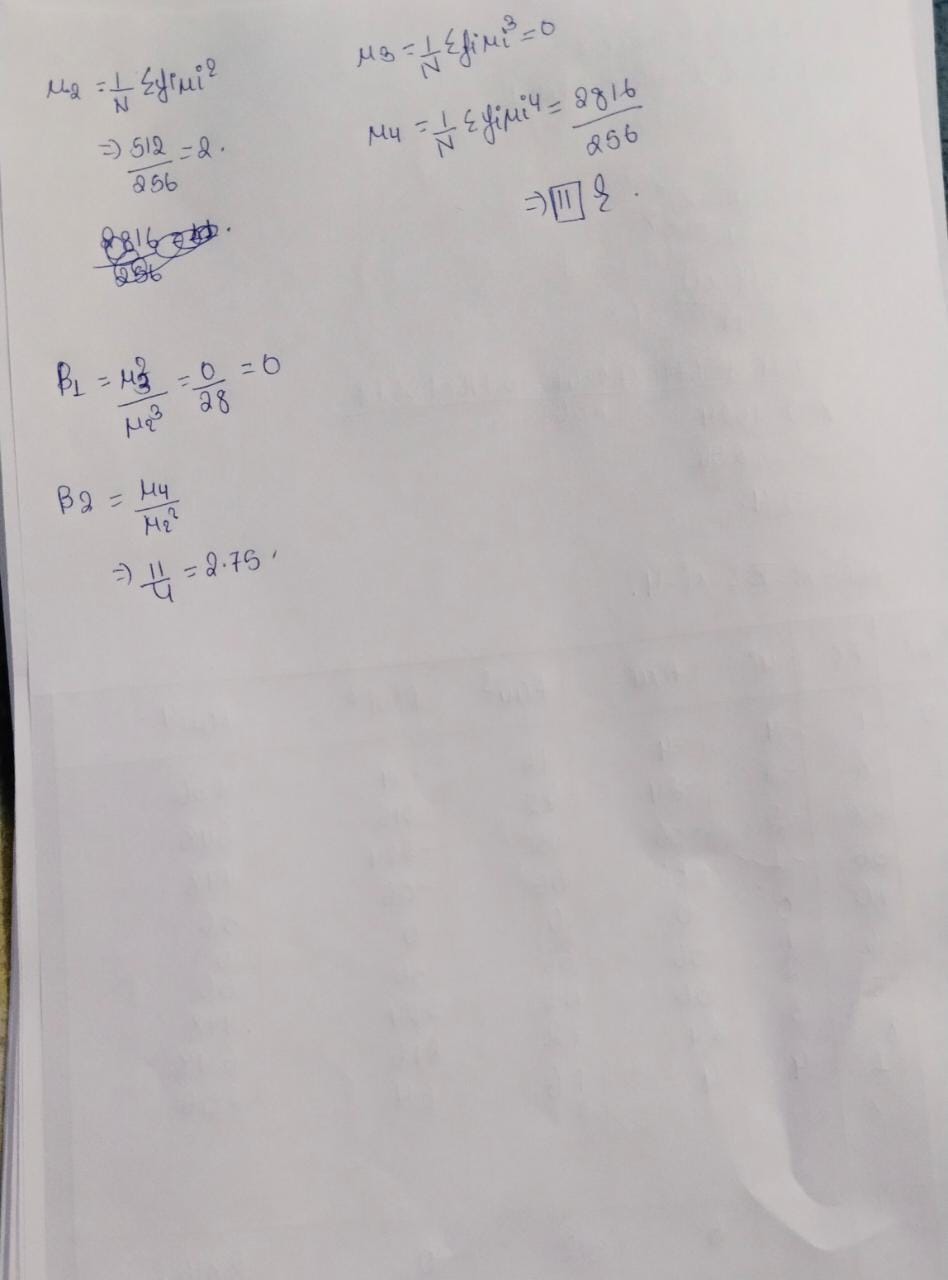 μ2 = 1/N Σfiμi²
⇒ 512/256 = 2.
μ3 = 1/N Σfiμi³ = 0
μ4 = 1/N Σfiμi⁴ = 2816/256
⇒ 11
β1 = μ3²/μ2³ = 0/28 = 0
β2 = μ4/μ2²
⇒ 11/4 = 2.75